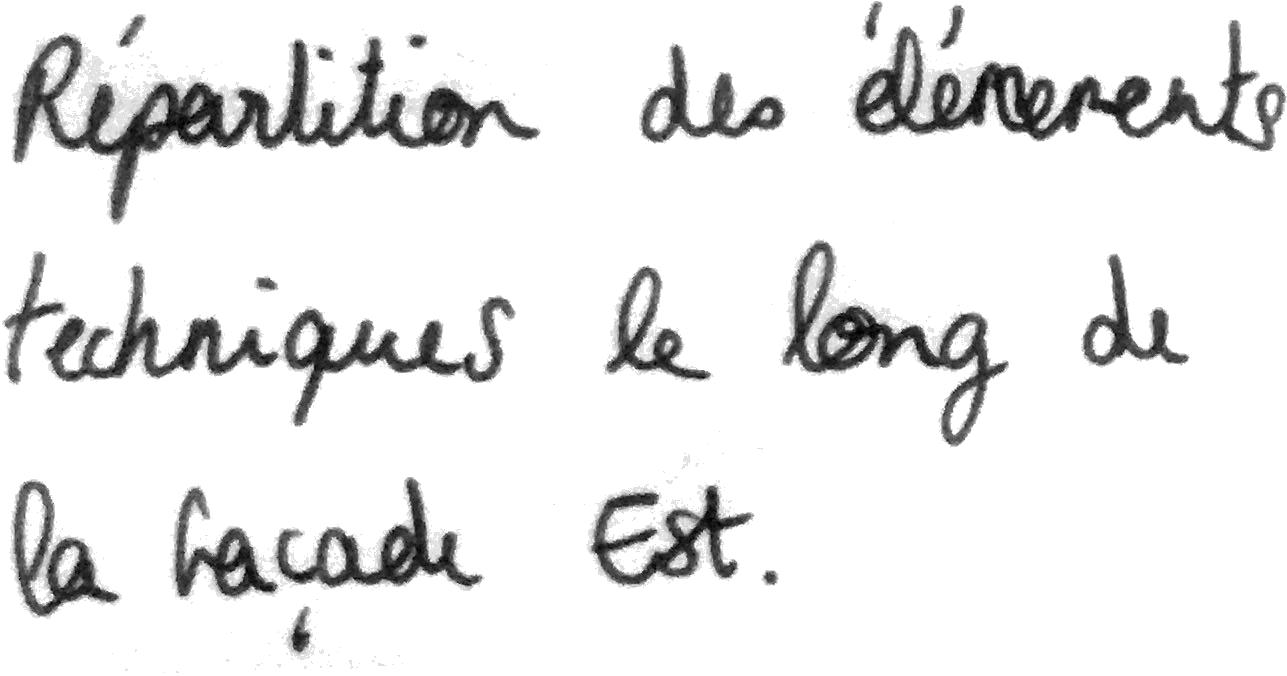 Répartition des éléments
techniques le long de
la façade Est.